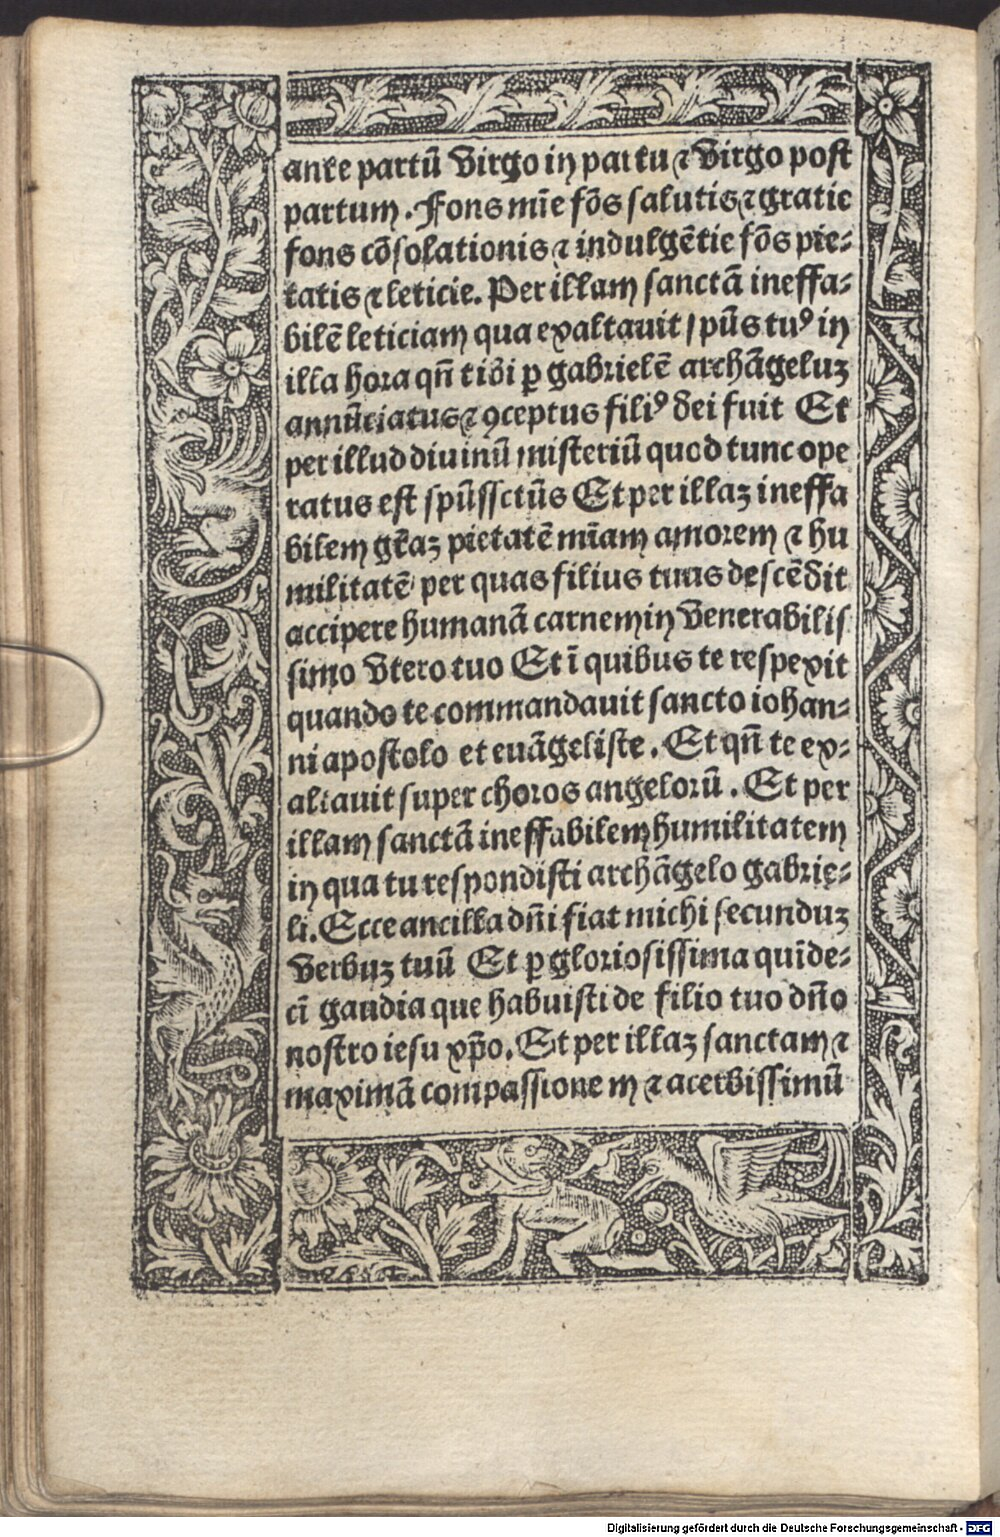 ante partū Virgo in partu ⁊ Virgo post
partum. Fons mīe fōs salutis ⁊ gratie
fons cōsolationis ⁊ indulgētie fōs pie-
tatis ⁊ leticie. Per illam sanctā ineffa-
bilē leticiam qua exaltauit spūs tuꝰ in
illa hora qn̄ tibi ꝑ gabrielē archāgeluz
annūciatus ⁊ ꝯceptus filiꝰ dei fuit Et
per illud diuinū misteriū quod tunc ope
ratus est spūssctūs Et per illaz ineffa
bilem gr̄az pietatē mīam amorem ⁊ hu
militatē per quas filius tuus descēdit
accipere humanā carnem in Venerabilis
simo Vtero tuo Et ī quibus te respexit
quando te commandauit sancto iohan-
ni apostolo et euāgeliste. Et qn̄ te ex-
altauit super choros angelorū. Et per
illam sanctā ineffabilem humilitatem
in qua tu respondisti archāgelo gabrie-
li. Ecce ancilla dn̄i fiat michi secunduz
Verbuz tuū Et ꝑ gloriosissima quīde-
cī gaudia que habuisti de filio tuo dn̄o
nostro iesu xp̄o. Et per illaz sanctam ⁊
maximā compassionem ⁊ acerbissimū
Digitalisierung gefördert durch die Deutsche Forschungsgemeinschaft - DFG